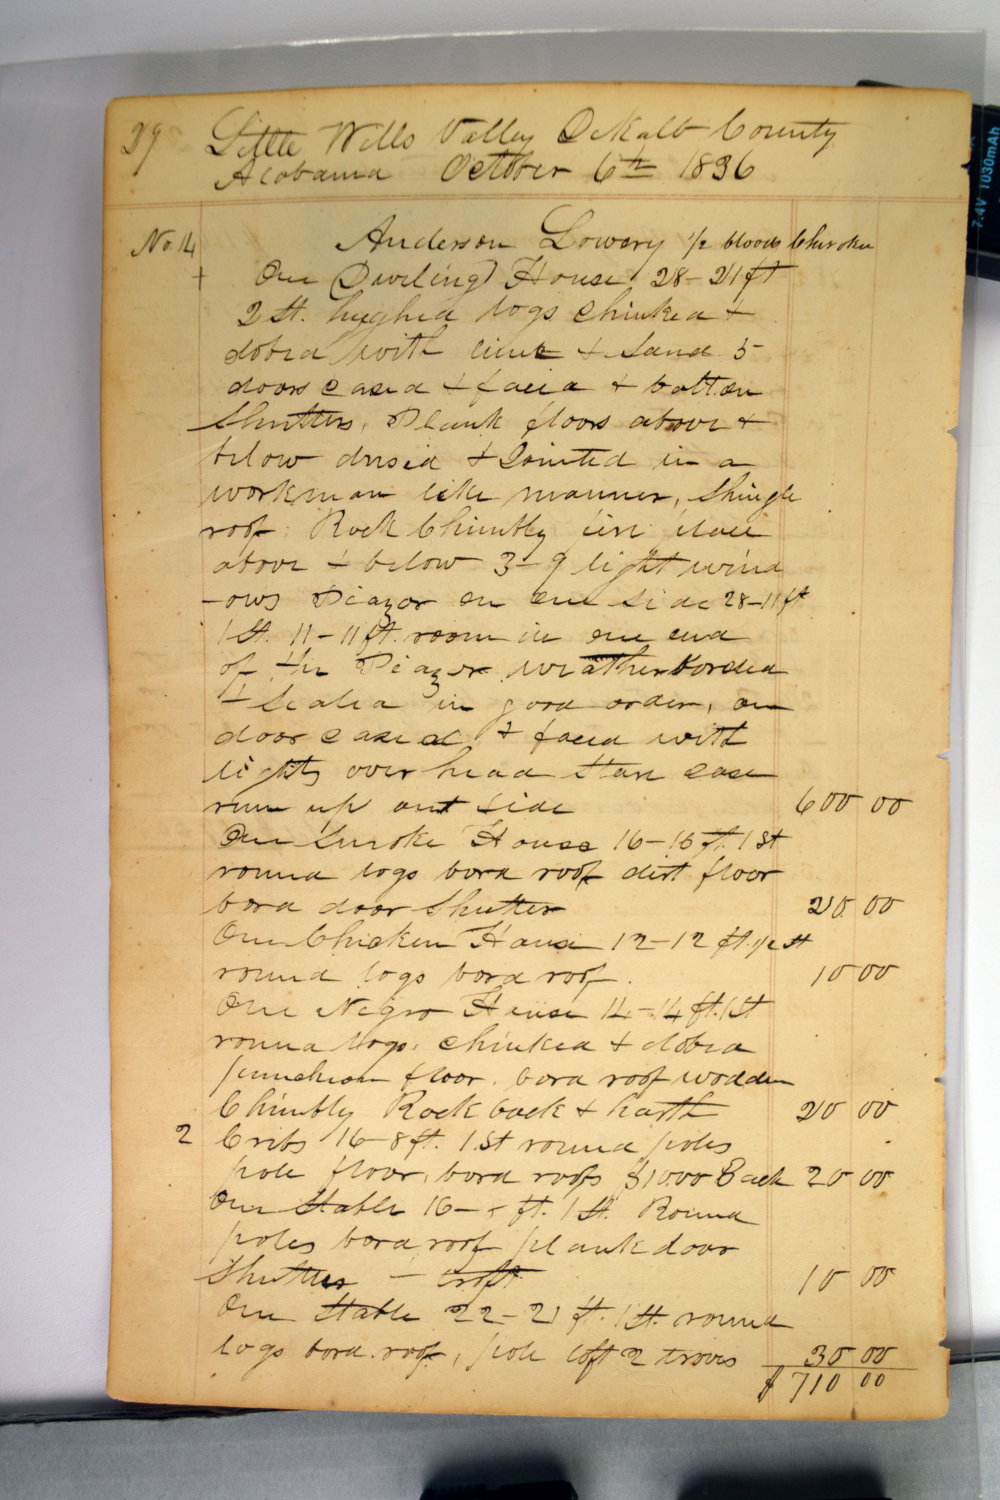 29 Little Wills Valley DeKalb County
Alabama October 6th 1836
No. 14 Anderson Lowery 1/2 bloods Cherokee
+ One Dweling House 28-21 ft
2 St. hughed logs chinked +
dobed with lime + Sand 5
doors cased + faced + batten
Shutters, Plank floors above +
below dresed + Jointed in a
workman like manner, Shingle
roof. Rock Chimbly fire place
above + below 3-9 light wind
-ows Piazor on one side 28-11 ft
1 St. 11-11 ft. room in one end
of the Piazor weatherborded
+ Sealed in good order, one
door cased + faced with
lights over head Stare case
run up out side 600 00
One Smoke House 16-16 ft. 1 St
round logs bord roof dirt floor
bord door Shutter 20 00
One Chicken House 12-12 ft. 1/2 St
round logs bord roof. 10 00
One Negro House 14-14 ft. 1 St
round logs. chinked + dobed
puncheon floor. bord roof wodden
Chimbly Rock back + harth 20 00
2 Cribs 16-8 ft. 1 St round poles
pole floor, bord roofs $10 00 Each 20 00
One Stable 16- ft. 1 St. Round
poles bord roof plank door
Shutter - loft 10 00
One Stable 22-21 ft. 1 St. round
logs bord. roof, pole loft 2 trovs 30 00
$710 00
7.4V 1030mAh